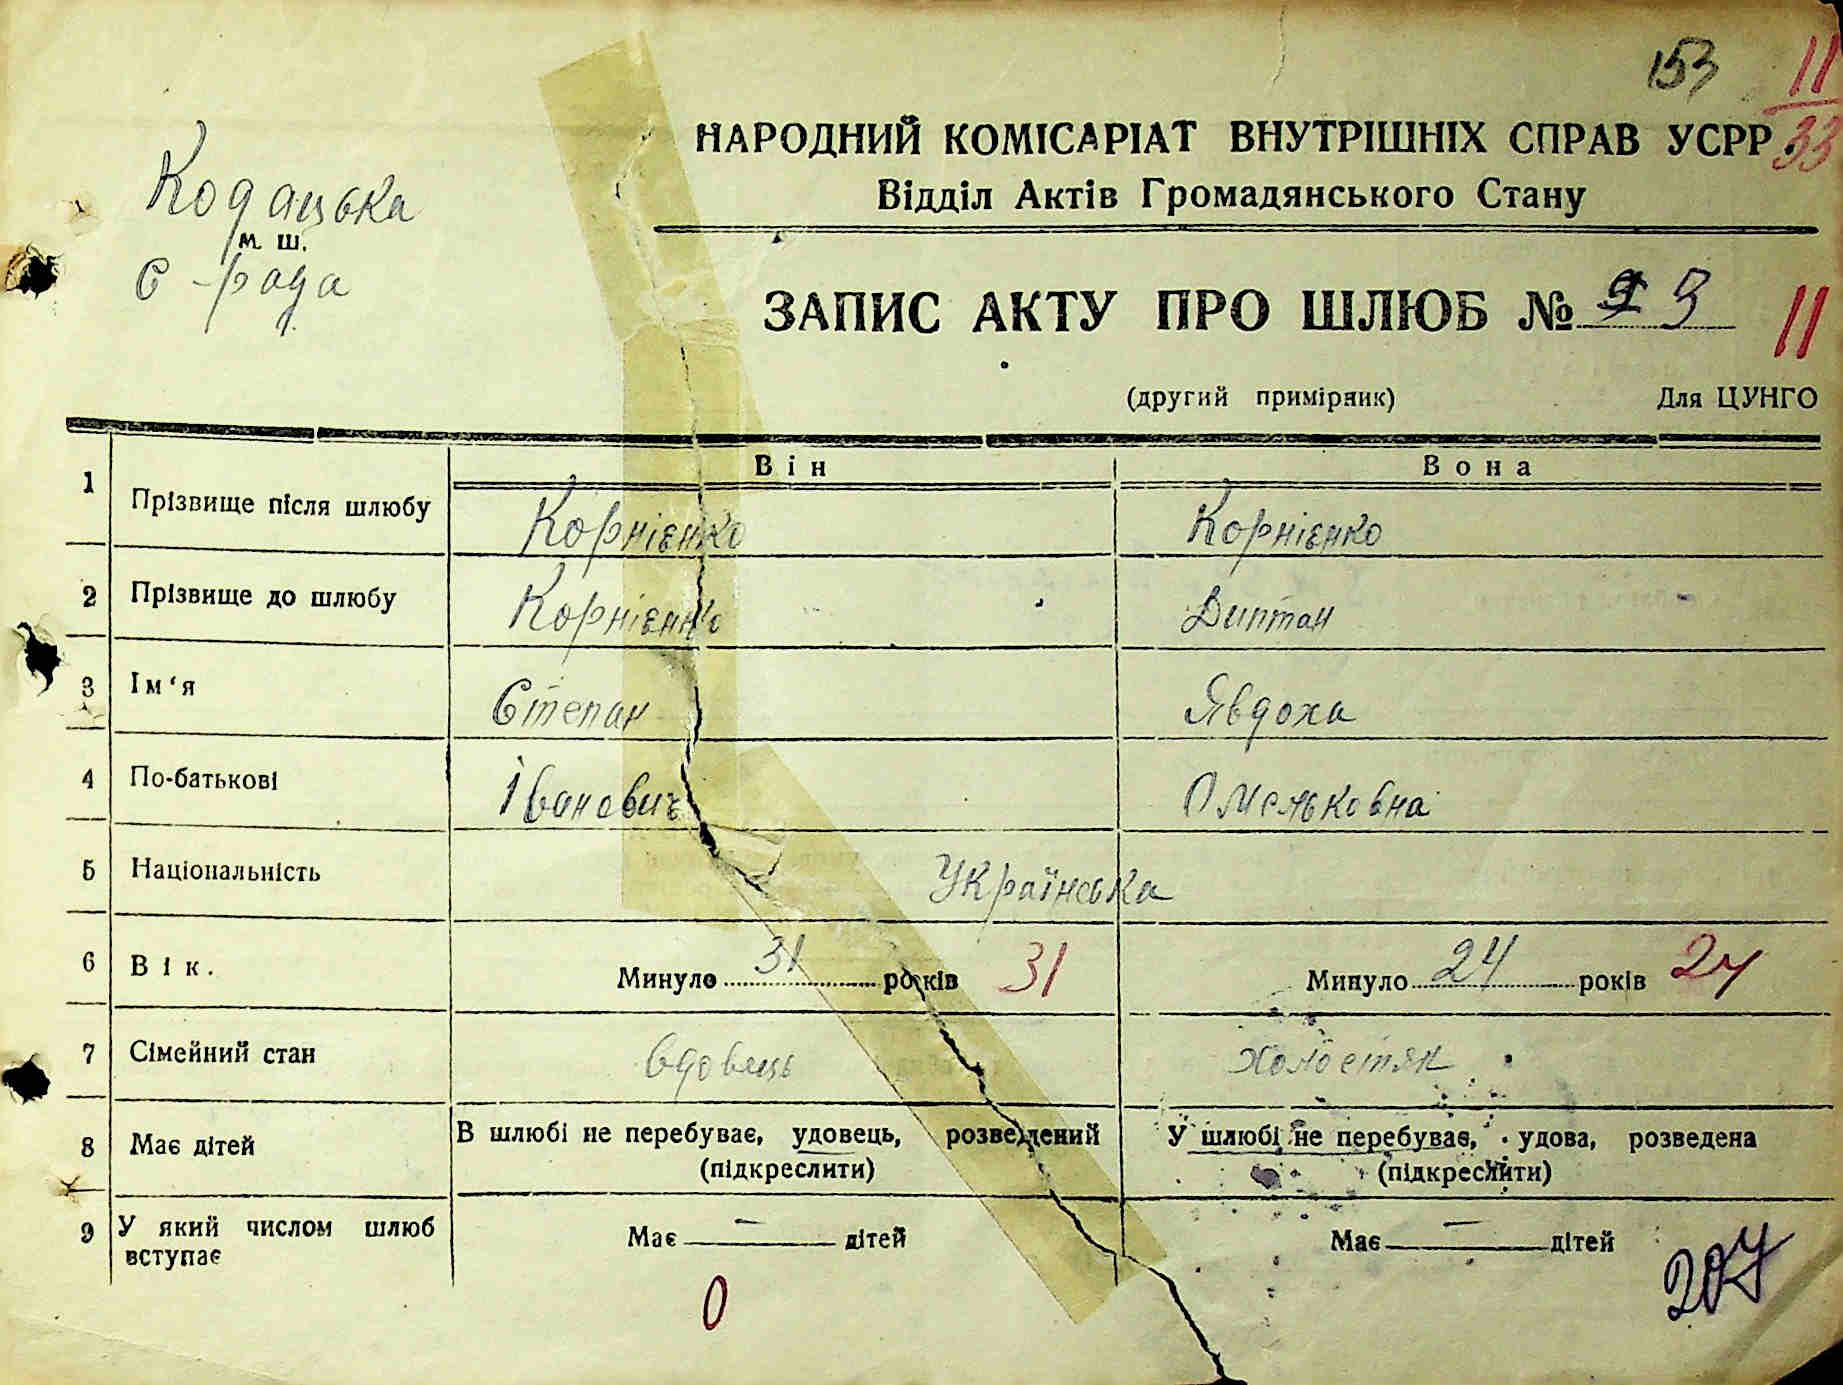 153
11
33
Кодацька
м. ш.
с-рада
НАРОДНИЙ КОМІСАРІАТ ВНУТРІШНІХ СПРАВ УСРР.
Відділ Актів Громадянського Стану
ЗАПИС АКТУ ПРО ШЛЮБ № 9
11
(другий примірник) Для ЦУНГО
Він Вона
1 Прізвище після шлюбу Корнієнко Корнієнко
2 Прізвище до шлюбу Корнієнко Диптан
3 Ім‘я Степан Явдоха
4 По-батькові Іванович Омельковна
5 Національність Українська
6 Вік. Минуло 31 років 31 Минуло 24 років 24
7 Сімейний стан вдовець холостяк
8 Має дітей В шлюбі не перебуває, удовець, розведений У шлюбі не перебуває, удова, розведена
(підкреслити) (підкреслити)
9 У який числом шлюб вступає Має — дітей Має — дітей
0
207